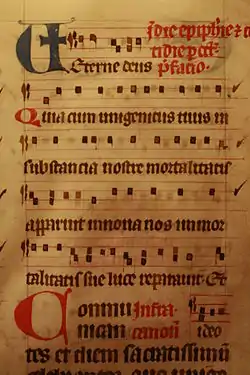 In die epiphīe ⁊ c
tidie p oct
Eterne deus p̄facio.
Quia cum unigenitus tuus in
substancia nostre mortalitatis
apparuit in noua nos inmor
talitatis sue luce reparauit Et
Conmu Infra
nican canonū ideo
tes et diem sacratissimū